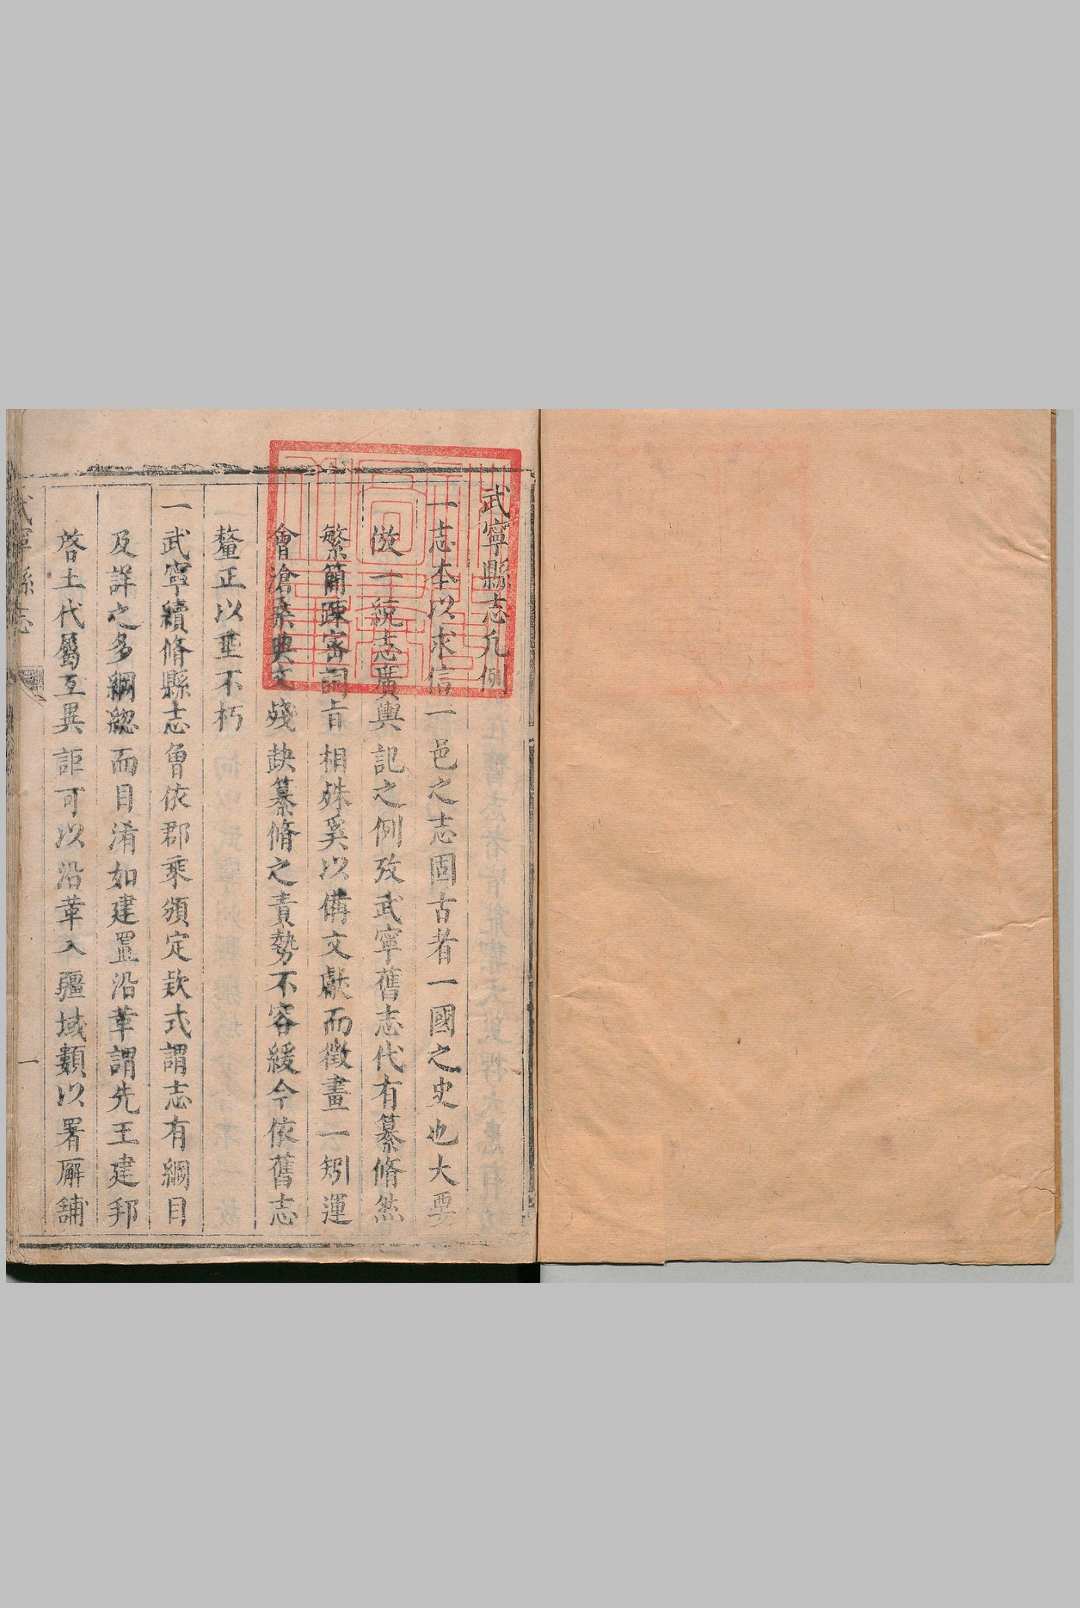 武寧縣志凡例
一志本以求信一邑之志固古者一國之史也大要
倣一統志廣輿記之例攷武寧舊志代有纂脩然
繁簡踈密詞旨相殊奚以備文獻而徵畫一矧運
會滄桑典文殘缺纂脩之責勢不容緩今依舊志
釐正以垂不朽
一武寧續脩縣志會依郡乘頒定欵式謂志有綱目
及詳之多綱總而目淆如建置沿革謂先王建邦
啓土代屬互異詎可以沿革入疆域類以署廨舖
武寧縣志
一